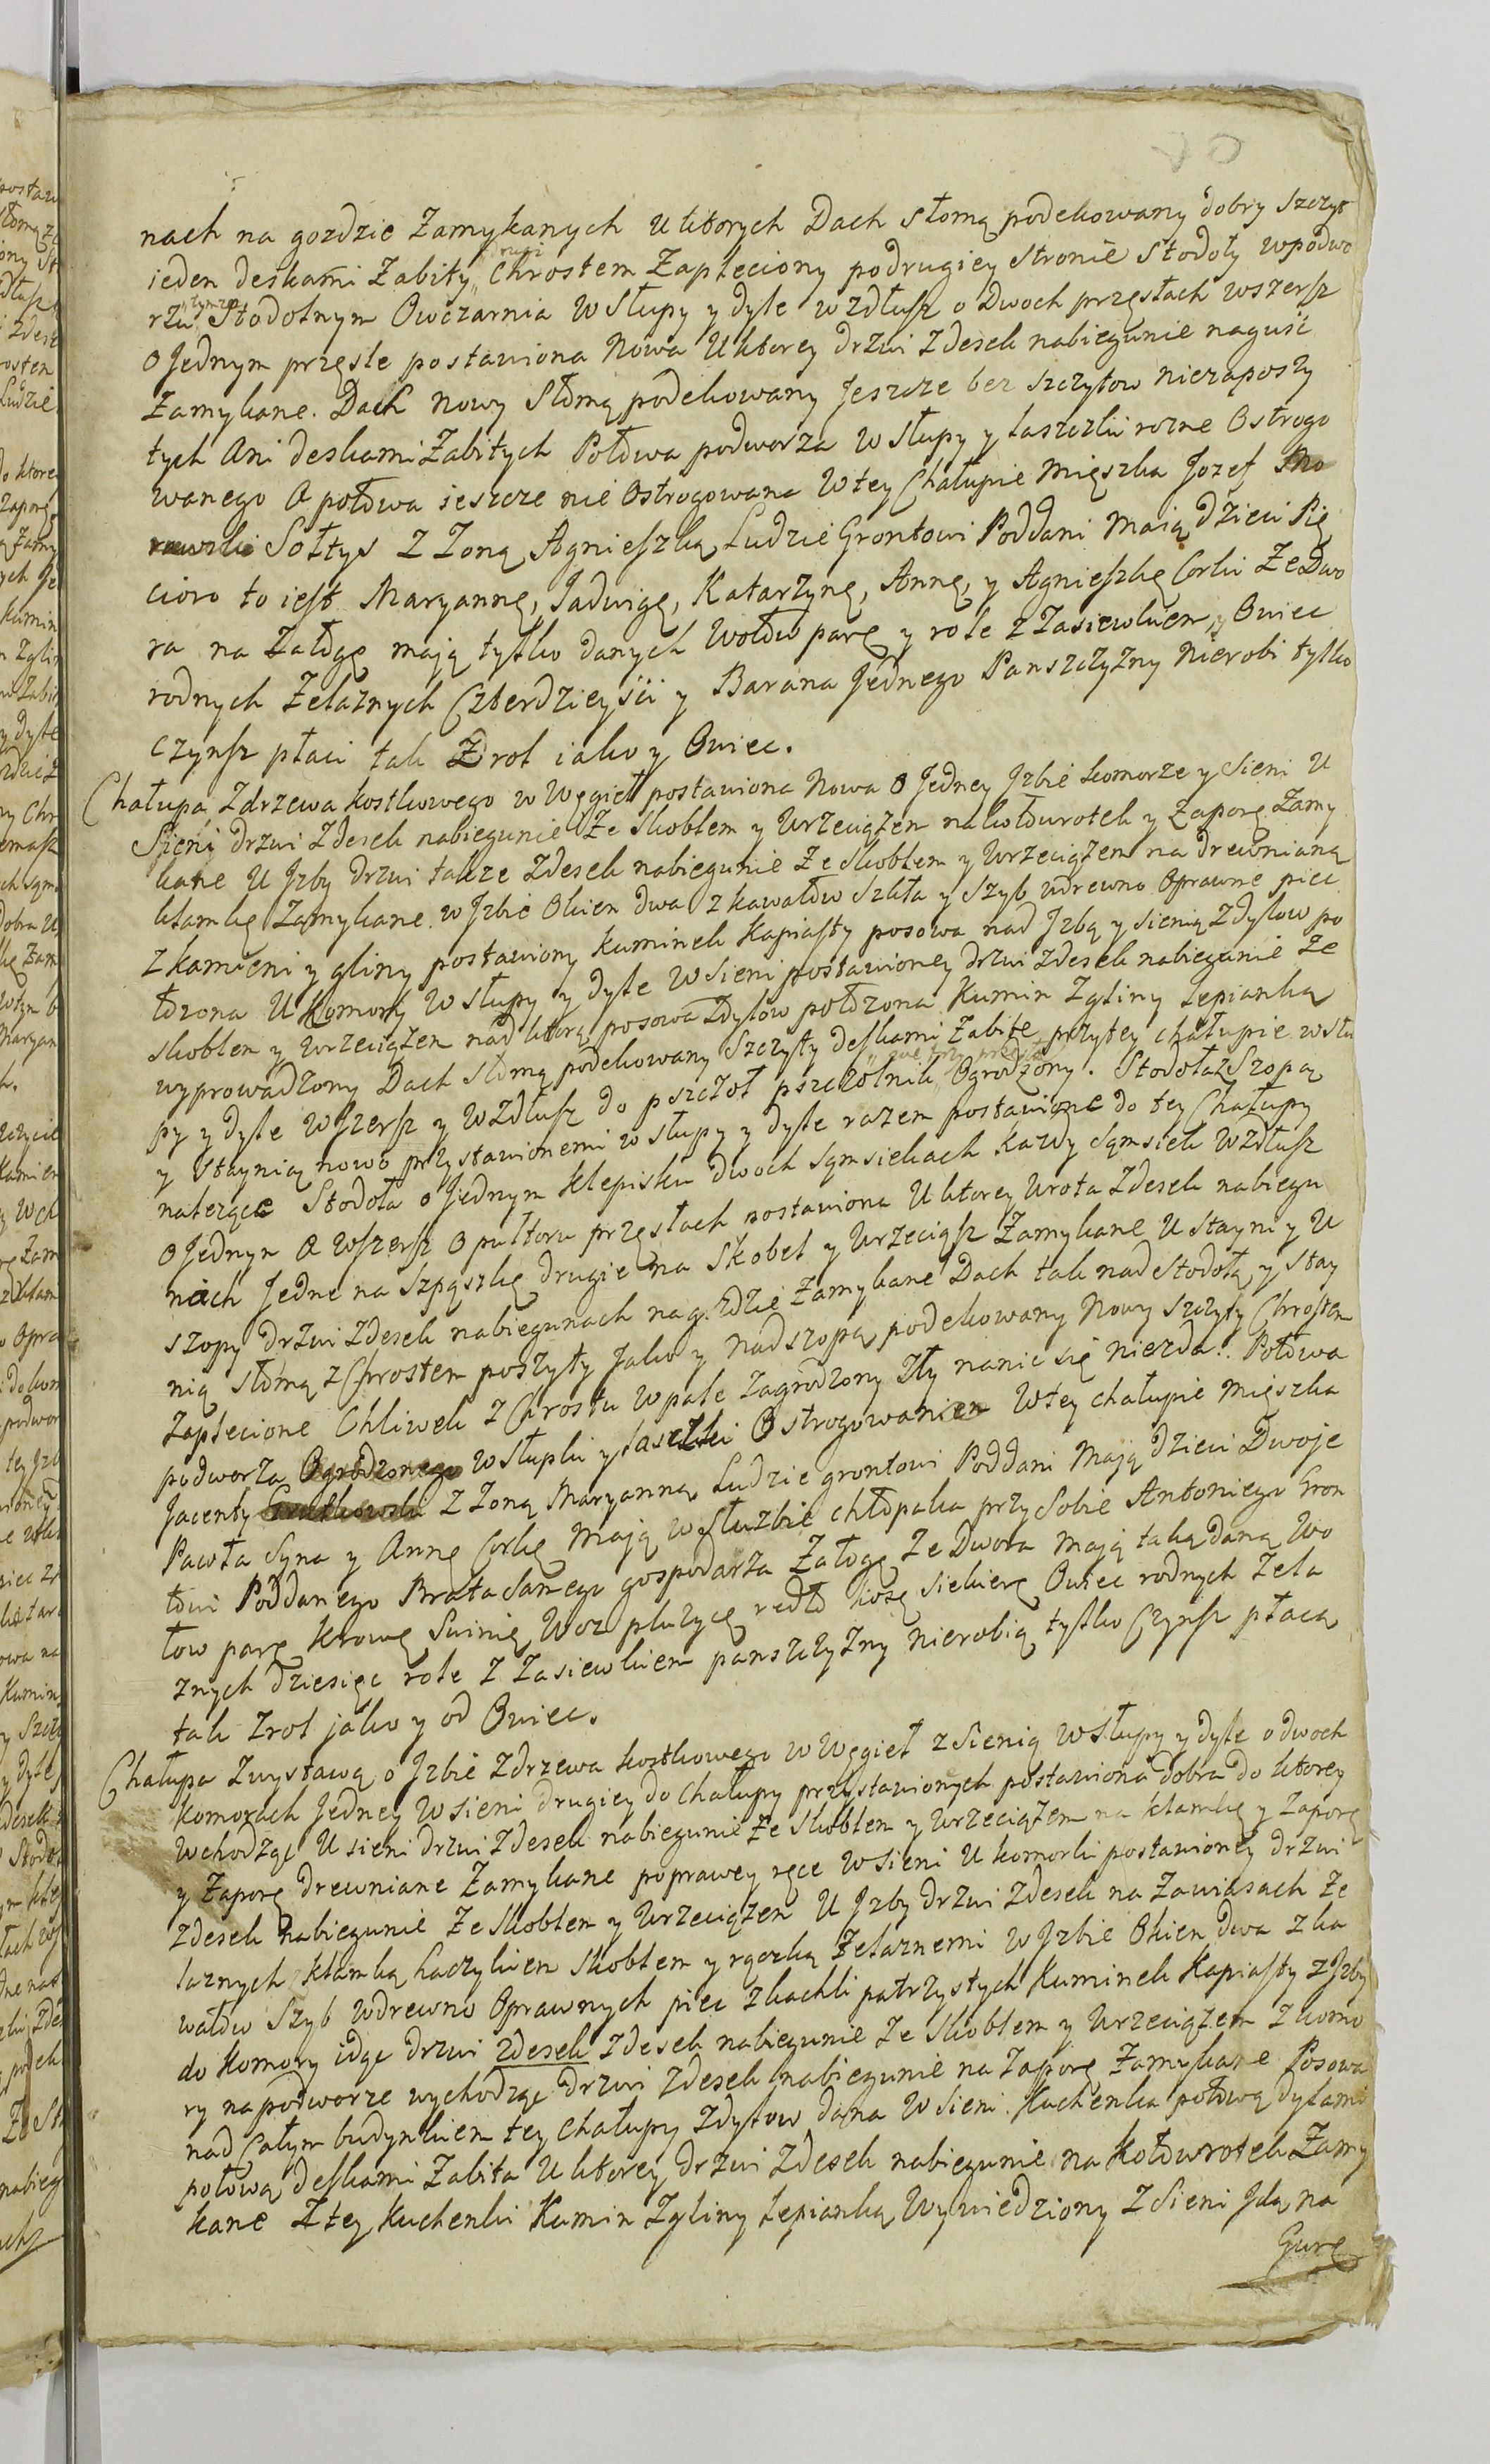 nach na gozdzie Zamykanych u ktorych Dach słomą podekowany dobry szczyt
ieden deskami Zabity „ Chrostem Zapleciony podrugiey stronie stodoły wpodwo
rzu Stodolnym Owczarnia w Słupy y dyle wzdłusz o Dwoch przęsłach wszersz
o Jednym przęsle postawiona Nowa U ktorey drzwi z desek nabiegunie naguść
Zamykane. Dach nowy Słomą podekowany Jeszcze bez szczytow niezaposzy
tych Ani deskami Zabitych Połowa podworza w Słupy y laszczki rozne Ostrogo
wanego a połowa ieszcze nie Ostrogowana w tey Chałupie Mięszka Jozef Mo
rawski Sołtys z Zoną Agnieszką Ludzie Grontowi Poddani maią dzieci Pię
cioro to iest Maryannę, Jadwigę, Katarzynę, Annę, y Agnieszkę Corki Ze Dwo
ra na Załogę mają tylko danych Wołow parę y role z Zasiewkiem y Owiec
rodnych Zelaznych Czterdzieyści y Barana Jednego Panszczyzny Nierobi tylko
czynsz płaci tak Z rol iako y Owiec.
Chałupa Zdrzewa kostkowego w Węgieł postawiona Nowa o Jedney Jzbie komorze y Sieni U
Sieni drzwi Zdesek nabiegunie Ze Skoblem y Wrzeciążem nakołowrotek y Zaporę Zamy
kane U Jzby drzwi takze Zdesek nabiegunie Ze Skoblem y Wrzeciążem na drewnianą
klamkę Zamykane. w Jzbie Okien dwa z kawałow Szkła y Szyb wdrewno Oprawne piec
z kamieni y gliny postawiony kuminek Kapiasty posowa nad Jzbą y sienią Zdylow po
łozona U Komory w Słupy y dyle w sieni postawioney drzwi zdesek nabiegunie Ze
skoblem y Wrzeciążem nad ktorą posowa Zdylow położona Kumin Zgliny Lepianką
wyprowadzony Dach słomą podekowany Szczyty deskami Zabite przytey chałupie w słu
py y dyle wszersz y wzdłusz do pszczoł pszczolnik „ Ogrodzony. Stodoła z Szopą
y Staynią nowo przystawionemi w słupy y dyle razem postawione do tey Chałupy
należące Stodoła o Jednym klepisku dwoch sąmsiekach każdy sąmsiek wzdłusz
o Jednym a wszersz o pułtoru przęsłach postawiona U ktorey Wrota Zdesek nabiegu
nach Jedne na szpąszkę drugie na Skobel y Wrzeciąsz Zamykane U Stayni y U
szopy drzwi Zdesek nabiegunach nagozdzie Zamykane Dach tak nad Stodołą y Stay
nią słomą z Chrostem poszyty Jako y nadszopą podekowany Nowy szczyty Chrostem
Zaplecione Chliwek z Chrostu w pale Zagrodzony Zły nanic się niezda. Połowa
podworza Ogrodzonego w słupki y łaszczki Ostrogowaniem W tey chałupie Mięszka
Jacenty z Zoną Maryanną Ludzie grontowi Poddani Mają dzieci Dwoje
Pawła Syna y Annę Corkę Mają w służbie chłopaka przy Sobie Antoniego Gron
towi Poddanego Brata Samego gospodarza Załogę Ze Dwora mają taką daną Wo
łow parę Krowę Swinię Woz płużycę redło kosę siekierę Owiec rodnych Zela
znych dziesięc role z Zasiewkiem panszczyzny nierobią tylko Czynsz płacą
tak Z rol jako y od Owiec.
Chałupa Zwystawą o Jzbie Zdrzewa kostkowego w Węgieł z Sienią w Słupy y dyle o dwoch
komorach Jedney w Sieni drugiey do Chałupy przystawionych postawiona dobra do ktorey
Wchodząc U sieni drzwi Zdesek nabiegunie Ze Skoblem y Wrzeciążem na klamkę y Zaporę
y Zaporę drewniane Zamykane poprawey ręce w sieni U komorki postawioney drzwi
Zdesek nabiegunie Ze Skoblem y Wrzeciążem U Jzby drzwi Zdesek na Zawiasach Ze
laznych klamką haczykiem Skoblem y rączką Zelaznemi w Jzbie Okien dwa z ka
wałow Szyb wdrewno Oprawnych piec zkachli patrzystych Kuminek Kapiasty z Jzby
do Komory idąc drzwi zdesek Zdesek nabiegunie Ze Skoblem y Wrzeciążem z komo
ry na podworze wychodząc drzwi Zdesek nabiegunie na Zaporę Zamykane Posowa
nad Całym budynkiem tey Chałupy Zdylow dana w Sieni. Kuchenka połową dylami
połową deskami Zabita U ktorey drzwi Zdesek nabiegunie na kołowrotek Zamy
kane Z tey Kuchenki Kumin Zgliny Lepianką Wywiedziony Z Sieni Jdą na
Gurę